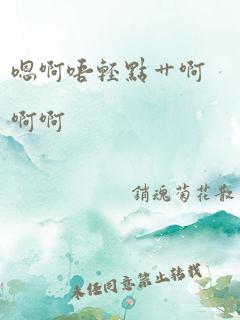 嗯啊唔輕點艹啊
啊啊
銷魂菊花散
未经同意禁止转载